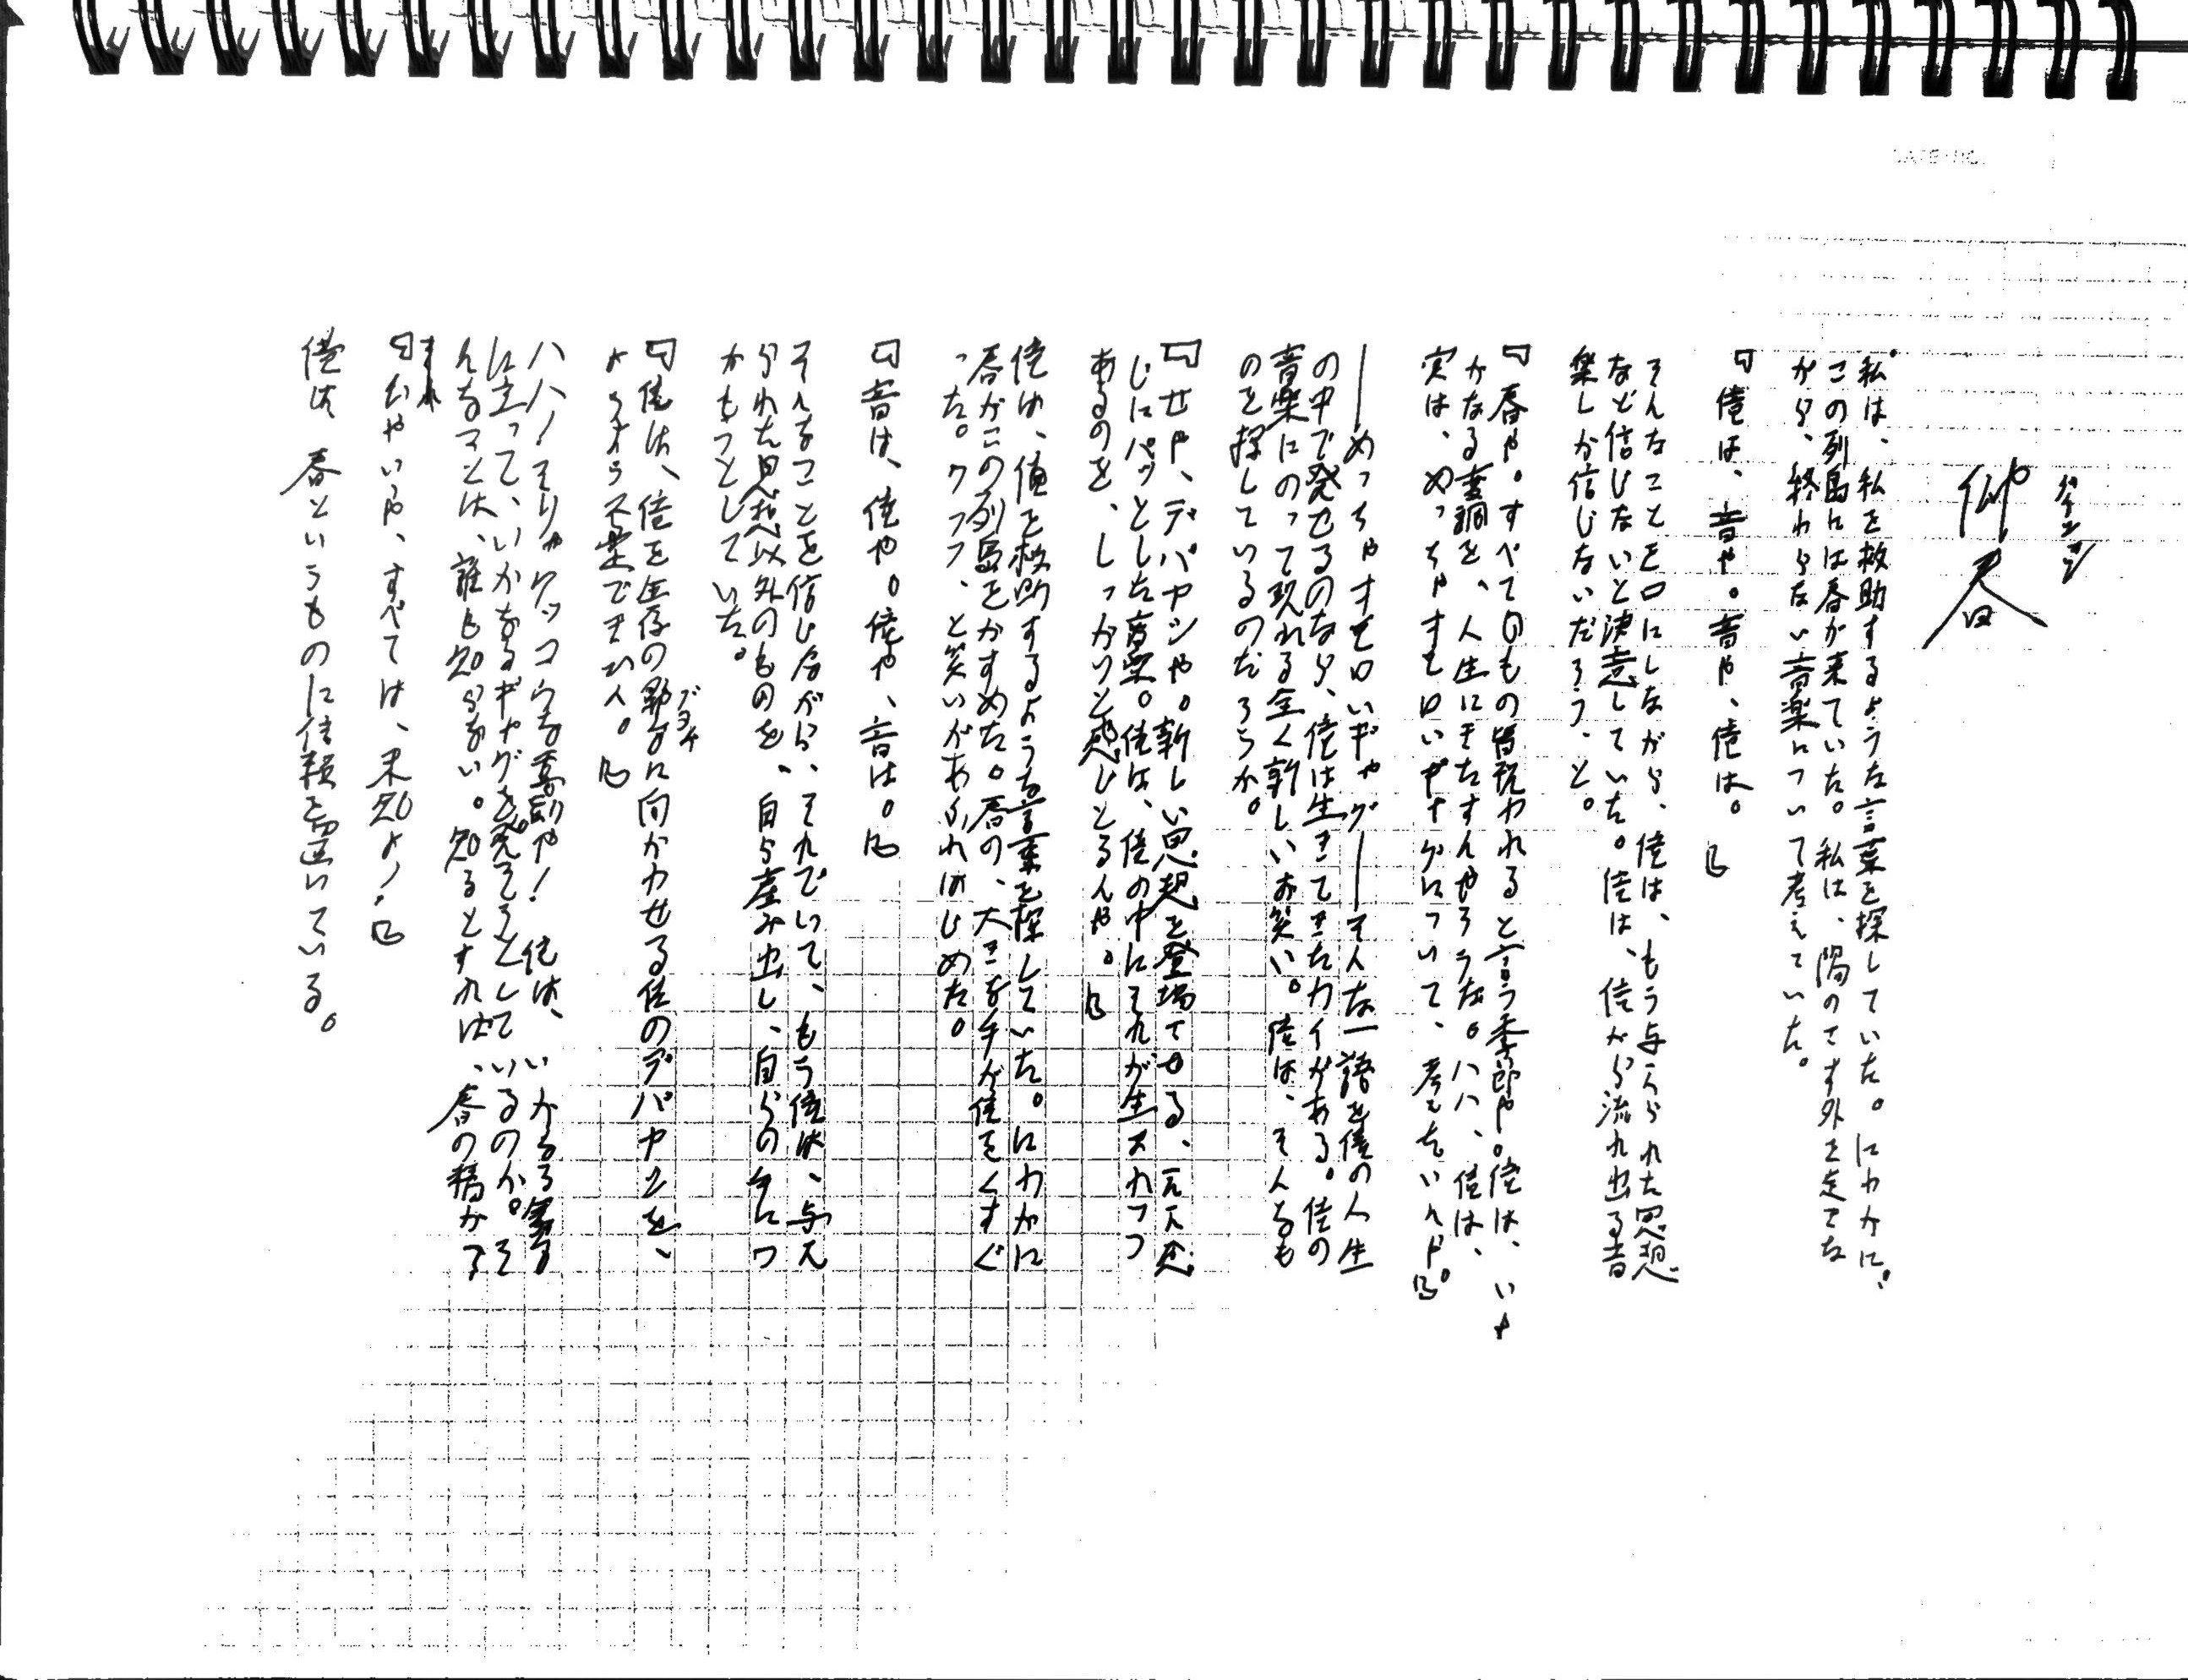 春
私は、私を救助するような言葉を探していた。にわかに、
この列島には春が来ていた。私は、陽のさす外を走りな
がら、終わらない音楽について考えていた。
『俺は、音や。音や、俺は。』
そんなことを口にしながら、俺は、もう与えられた思想
など信じないと決意していた。俺は、俺から流れ出る音
楽しか信じないだろう、と。
『春や。すべてのものの皆祝われると言う季節や。俺は、いや
かなる変調を、人生にきたすんやろうな。ハハ、俺は、
実は、めっちゃオモロいギャグについて、考えをいんド。』
――めっちゃオモロいギャグ――そんな一語を俺の人生
の中で発せるのなら、俺は生きてきたカイがある。俺の
音楽にのって現れる全く新しいお笑い。俺は、そんなも
のを探しているのだろうか。
『せや、デバヤシや。新しい思想を登場させる、云わば
じにパッとした音楽。俺は、俺の中にそれが生まれつつ
あるのを、しっかりと感じとるんや。』
俺は、俺を救助するような言葉を探していた。にわかに
春がこの列島をかすめた。春の、大きな手が俺をくすぐ
った。ワフフ、と笑いがあふれはじめた。
『音は、俺や。俺や、音は。』
そんなことを信じながら、それでいて、もう俺は、与え
られた思想以外のものを、自ら産み出し、自らの手につ
かもうとしていた。
『俺は、俺を生存の野に向かわせる俺のデバヤシを、
ようオラ又堂できひん。』
ハハ！そりゃケッコウな季節や！俺は、いかなる
に立って、いかなるギャグを発そうとしているのか。そ
んなことは、誰も知らない。知るとすれば、春の精か
『いやいや、すべては、未知よ！』
俺は春というものに信頼を置いている。